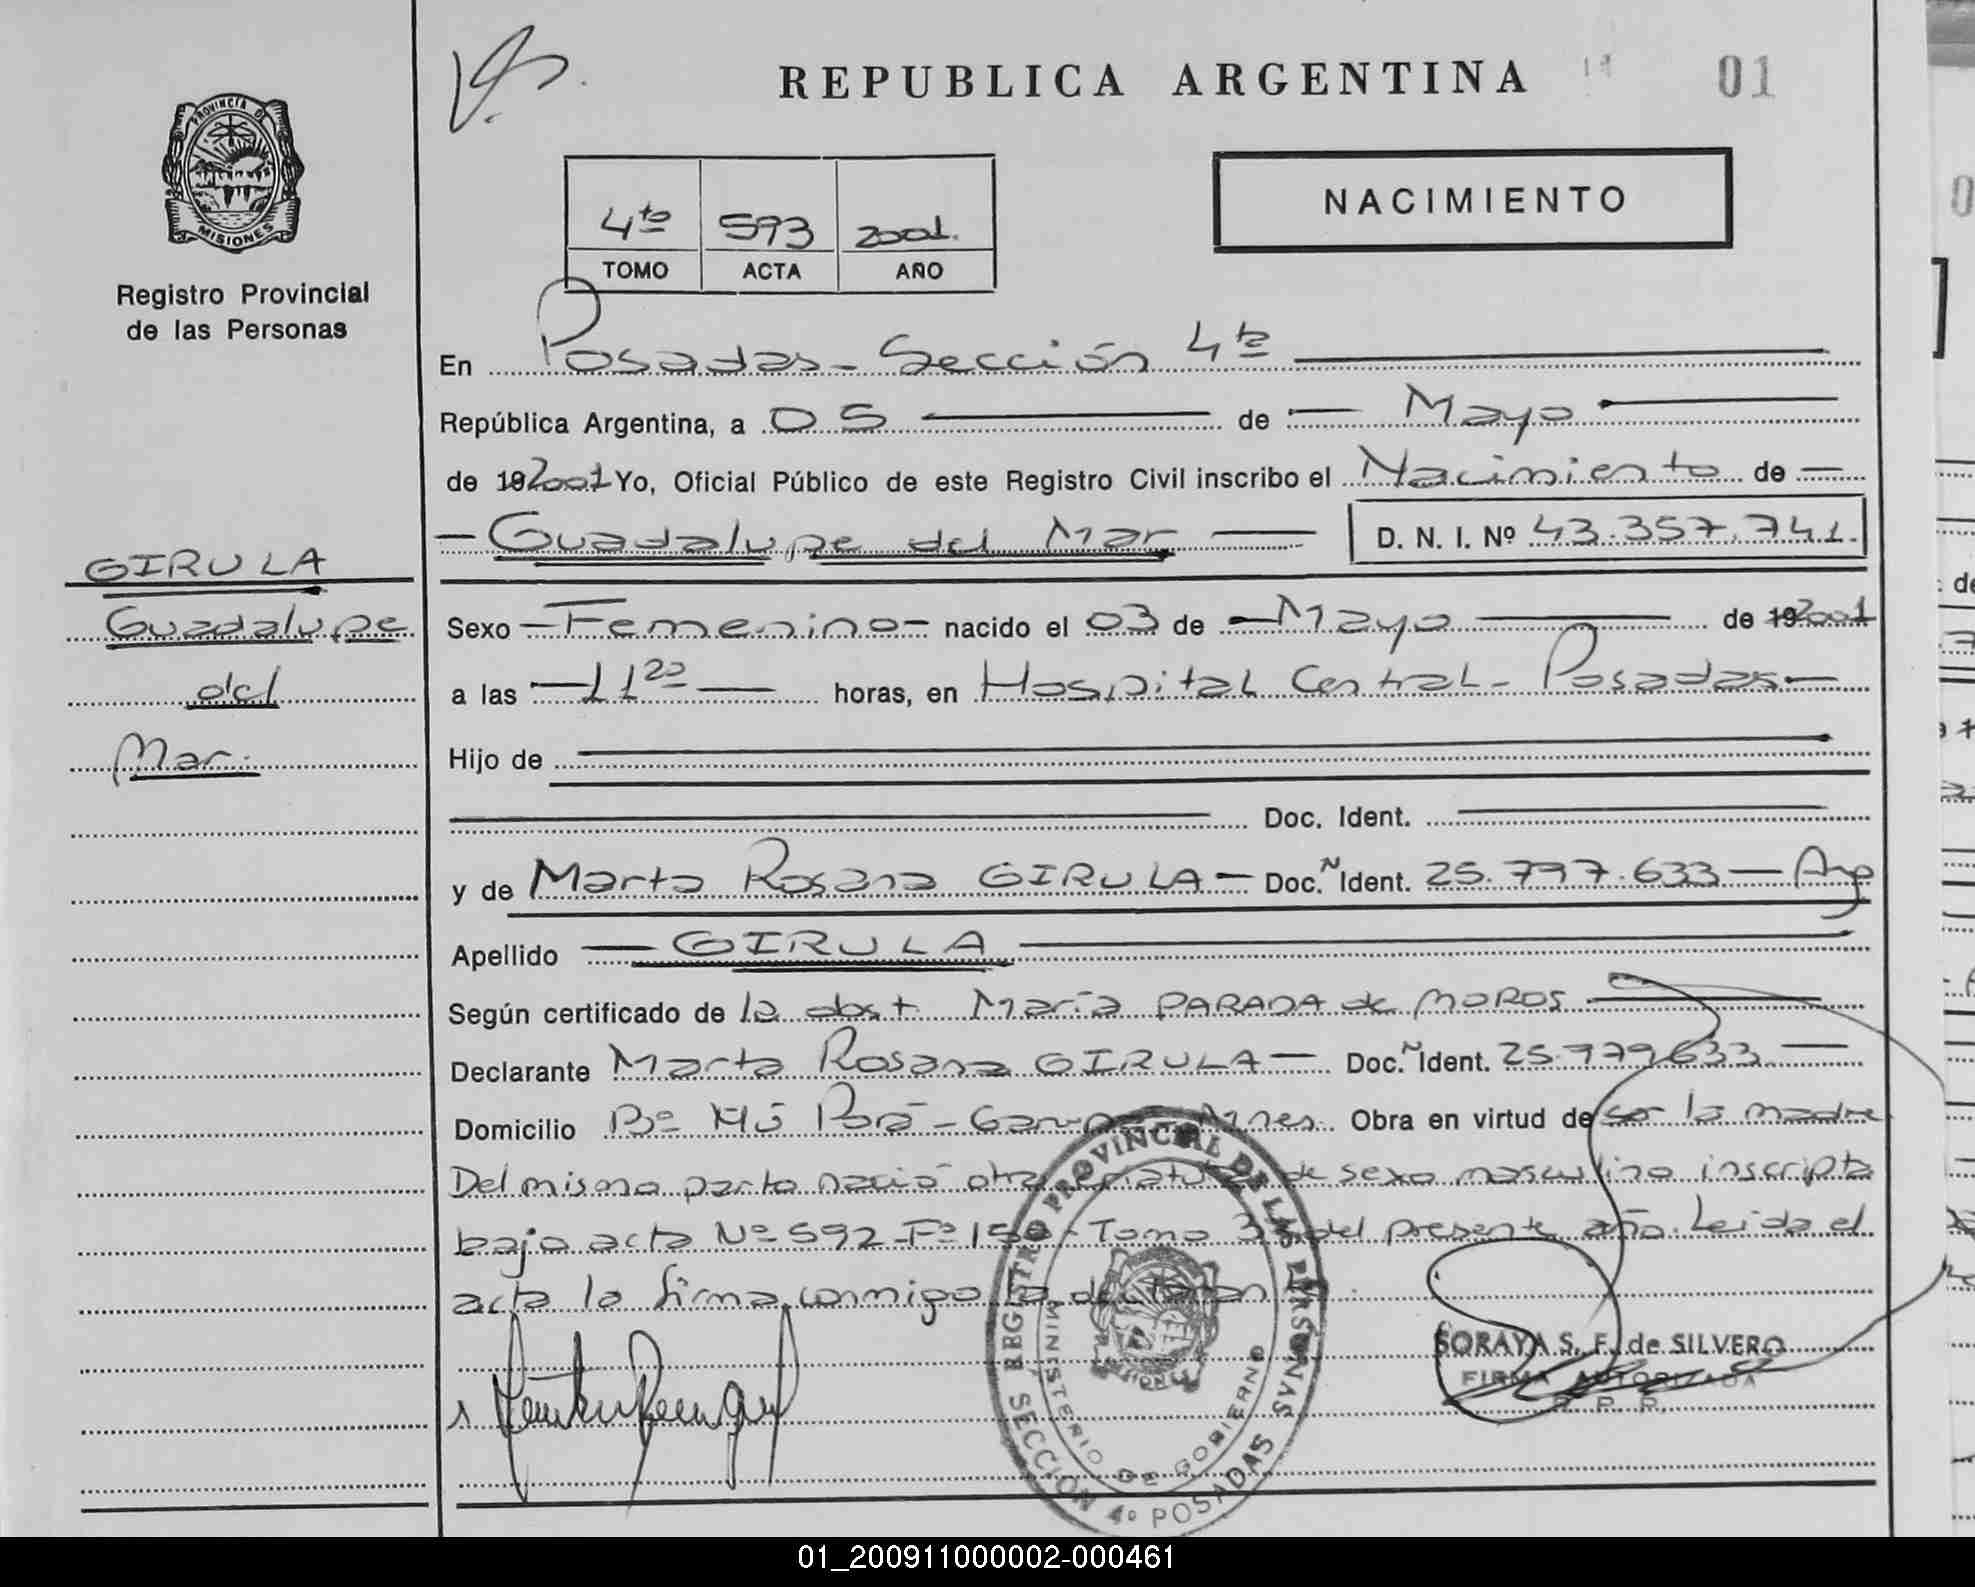 REPUBLICA ARGENTINA
01
PROVINCIA DE
MISIONES
Registro Provincial
de las Personas
4to 593 2001.
TOMO ACTA AÑO
NACIMIENTO
En Posadas - Sección 4ta
República Argentina, a 05 de Mayo
de 19 2001 Yo, Oficial Público de este Registro Civil inscribo el Nacimiento de
Guadalupe del Mar D. N. I. Nº 43.357.741.
GIRULA
Guadalupe
del
Mar.
Sexo Femenino nacido el 03 de Mayo de 19 2001
a las 11 20 horas, en Hospital Central - Posadas
Hijo de
Doc. Ident.
y de Marta Rosana GIRULA Doc. N Ident. 25.797.633 - Arg
Apellido GIRULA
Según certificado de la obst María PARADA de MOROS
Declarante Marta Rosana GIRULA Doc. N Ident. 25.979.633
Domicilio Bº Ñú Porá - Mnes. Obra en virtud de ser la madre
Del mismo parto nació otra de sexo masculino inscripta
bajo acta Nº 592 Fº Tomo del presente año. Leida el
acta la firma conmigo la
REGISTRO PROVINCIAL DE LAS PERSONAS
MINISTERIO DE GOBIERNO
SECCION 4º POSADAS
SORAYA S. F. de SILVERO
FIRMA AUTORIZADA
R. P. P.
01_200911000002-000461